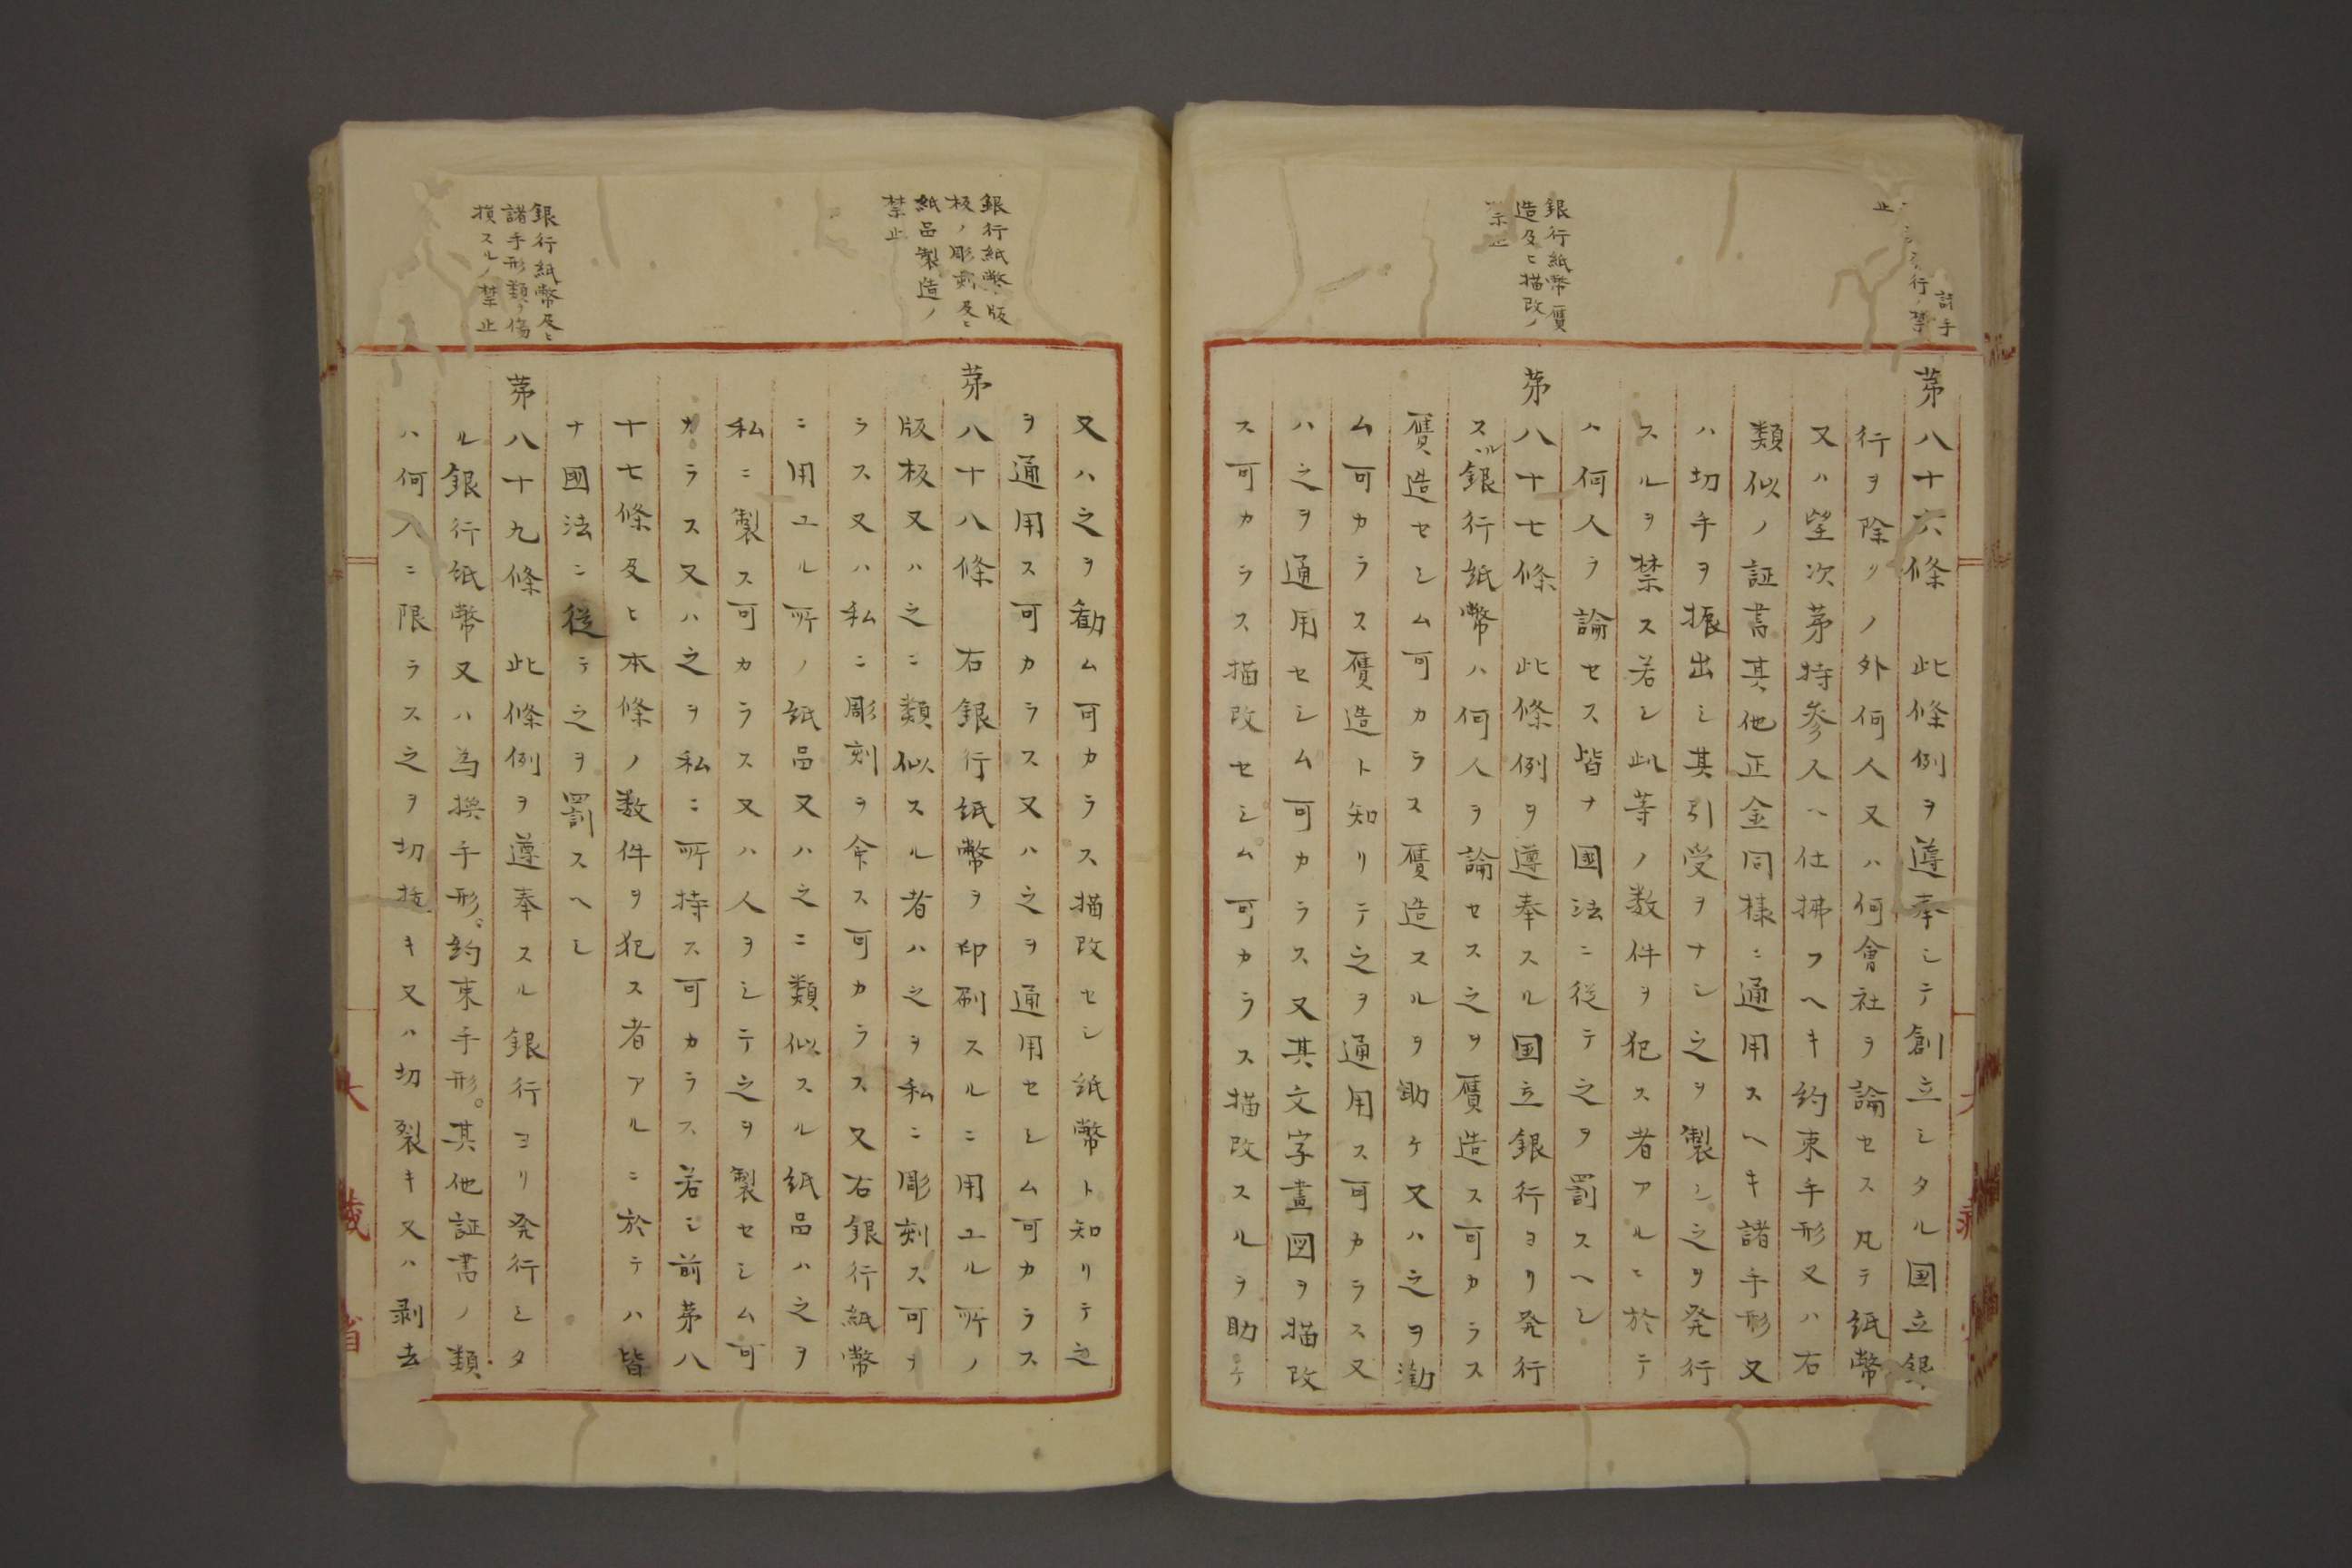 行ノ禁
止
諸手
第八十六條　此條例ヲ遵奉シテ創立シタル国立銀
行ヲ除クノ外何人又ハ何會社ヲ論セス凡テ紙幣
又ハ望次第持参人ヘ仕拂フヘキ約束手形又ハ右
類似ノ証書其他正金同様ニ通用スヘキ諸手形又
ハ切手ヲ振出シ其引受ヲナシ之ヲ製シ之ヲ発行
スルヲ禁ス若シ此等ノ数件ヲ犯ス者アルニ於テ
ハ何人ヲ論セス皆ナ國法ニ従テ之ヲ罰スヘシ
銀行紙幣贋
造及ヒ描改ノ
禁止
第八十七條　此條例ヲ遵奉スル国立銀行ヨリ発行
スル銀行紙幣ハ何人ヲ論セス之ヲ贋造ス可カラス
贋造セシム可カラス贋造スルヲ助ケ又ハ之ヲ勧
ム可カラス贋造ト知リテ之ヲ通用ス可カラス又
ハ之ヲ通用セシム可カラス又其文字畫図ヲ描改
ス可カラス描改セシム可カラス描改スルヲ助ケ
又ハ之ヲ勧ム可カラス描改セシ紙幣ト知リテ之
ヲ通用ス可カラス又ハ之ヲ通用セシム可カラス
銀行紙幣版
板ノ彫刻及ヒ
紙品製造ノ
禁止
第八十八條　右銀行紙幣ヲ印刷スルニ用ユル所ノ
版板又ハ之ニ類似スル者ハ之ヲ私ニ彫刻ス可カ
ラス又ハ私ニ彫刻ヲ命ス可カラス又右銀行紙幣
ニ用ユル所ノ紙品又ハ之ニ類似スル紙品ハ之ヲ
私ニ製ス可カラス又ハ人ヲシテ之ヲ製セシム可
カラス又ハ之ヲ私ニ所持ス可カラス若シ前第八
十七條及ヒ本條ノ数件ヲ犯ス者アルニ於テハ皆
ナ國法ニ従テ之ヲ罰スヘシ
銀行紙幣及ヒ
諸手形類ヲ傷
損スルノ禁止
第八十九條　此條例ヲ遵奉スル銀行ヨリ発行シタ
ル銀行紙幣又ハ為換手形。約束手形。其他証書ノ類
ハ何人ニ限ラス之ヲ切抜キ又ハ切裂キ又ハ剥去
大蔵省